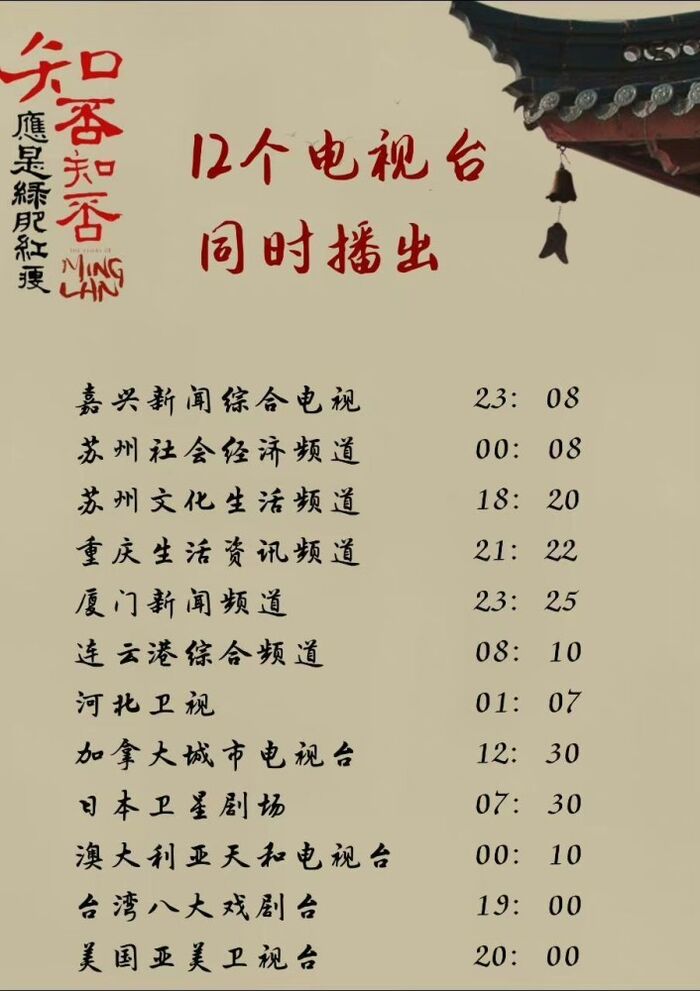 知否知否
應是綠肥紅瘦
THE STORY OF
MING
LAN
12个电视台
同时播出
嘉兴新闻综合电视 23: 08
苏州社会经济频道 00: 08
苏州文化生活频道 18: 20
重庆生活资讯频道 21: 22
厦门新闻频道 23: 25
连云港综合频道 08: 10
河北卫视 01: 07
加拿大城市电视台 12: 30
日本卫星剧场 07: 30
澳大利亚天和电视台 00: 10
台湾八大戏剧台 19: 00
美国亚美卫视台 20: 00